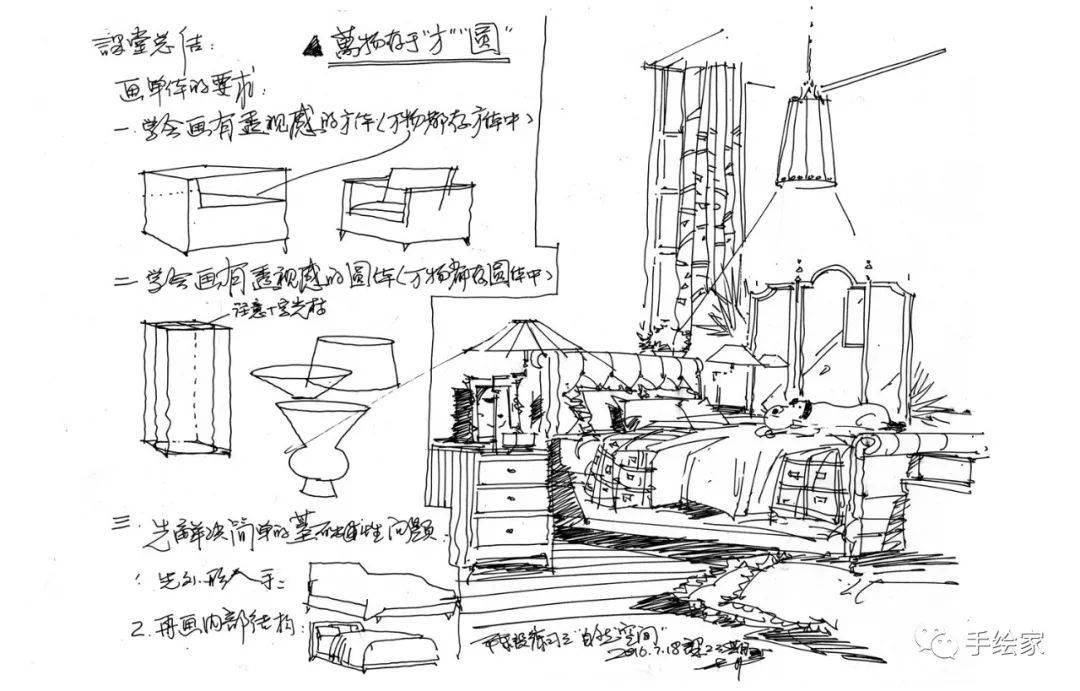 課堂总结:
▲ 萬物存于"方""圆"
画单体的要求:
一.学会画有透视感的方体(万物都在方体中)
二.学会画有透视感的圆体(万物都在圆体中)
三.先解决简单的基础性问题.
1.先外形入手:
2.再画内部结构:
2016.7.18
手绘家